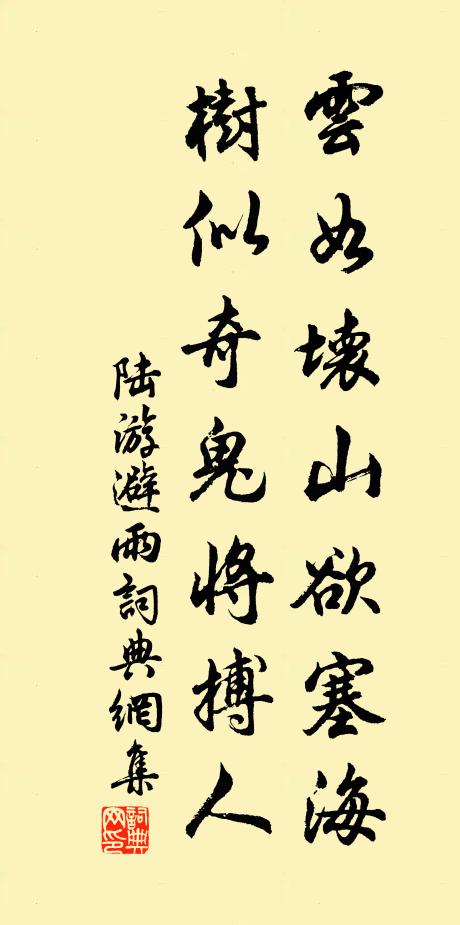 雲如壞山欲塞海
樹似奇鬼將搏人
陆游避雨詞典網集
詞典网印